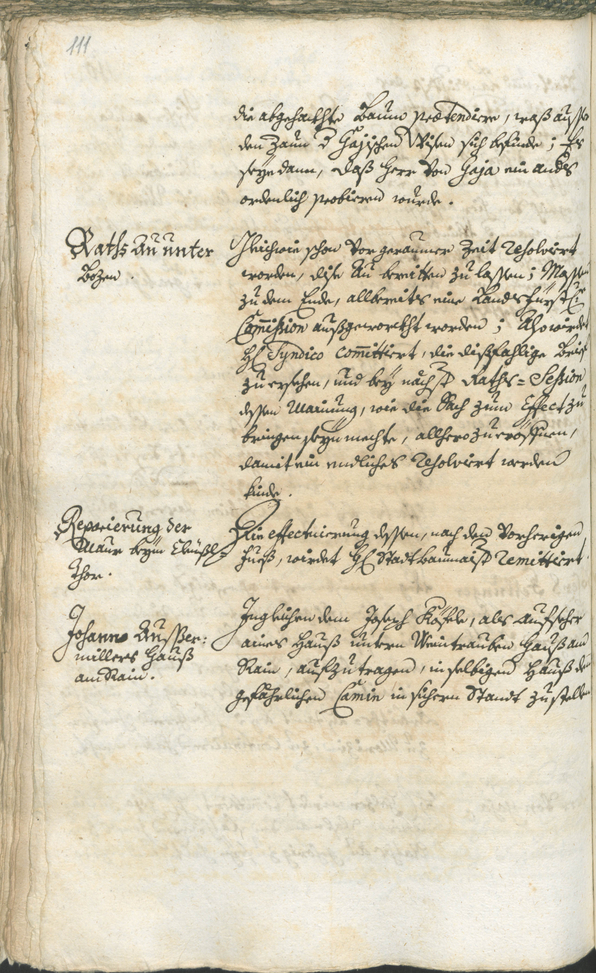 111
die abgehackhte Baum praetendiere, waß ausser
den Zaun d Gajischen Wisen sich befinde; Es
seye dann, daß Herr von Gaja ein anders
ordenlich probieren wurde.
Raths Au unter
Bozen.
Gleichwie schon vor geraumer Zeit resolviert
worden, dise Au bereitten zu lassen; Massen
zu dem Ende, allbereits eine Landsfürstl:
Commission außgeworckht worden; Also würdet
H: Syndico committiert, die dißfahlige Brief
zu ersehen, und bey nächst Raths=Session
dessen Mainung, wie die Sach zum Effect zu
bringen seyn mechte, allhero zu eröffnen,
damit ein endliches resolviert werden
künde.
Reparierung der
Maur beym
Thor.
Die effectuierung dessen, nach dem vorherigen
Fueß, würdet H: Stadtbaumaist remittiert.
Johann Ausser:
millers Hauß
am Rain.
Ingleichen dem Joseph Kofele, als aufseher
aines Hauß untern Weintrauben Hauß am
Rain, aufzutragen, in selbigen Hauß den
gefährlichen Camin in sichern Standt zu stellen